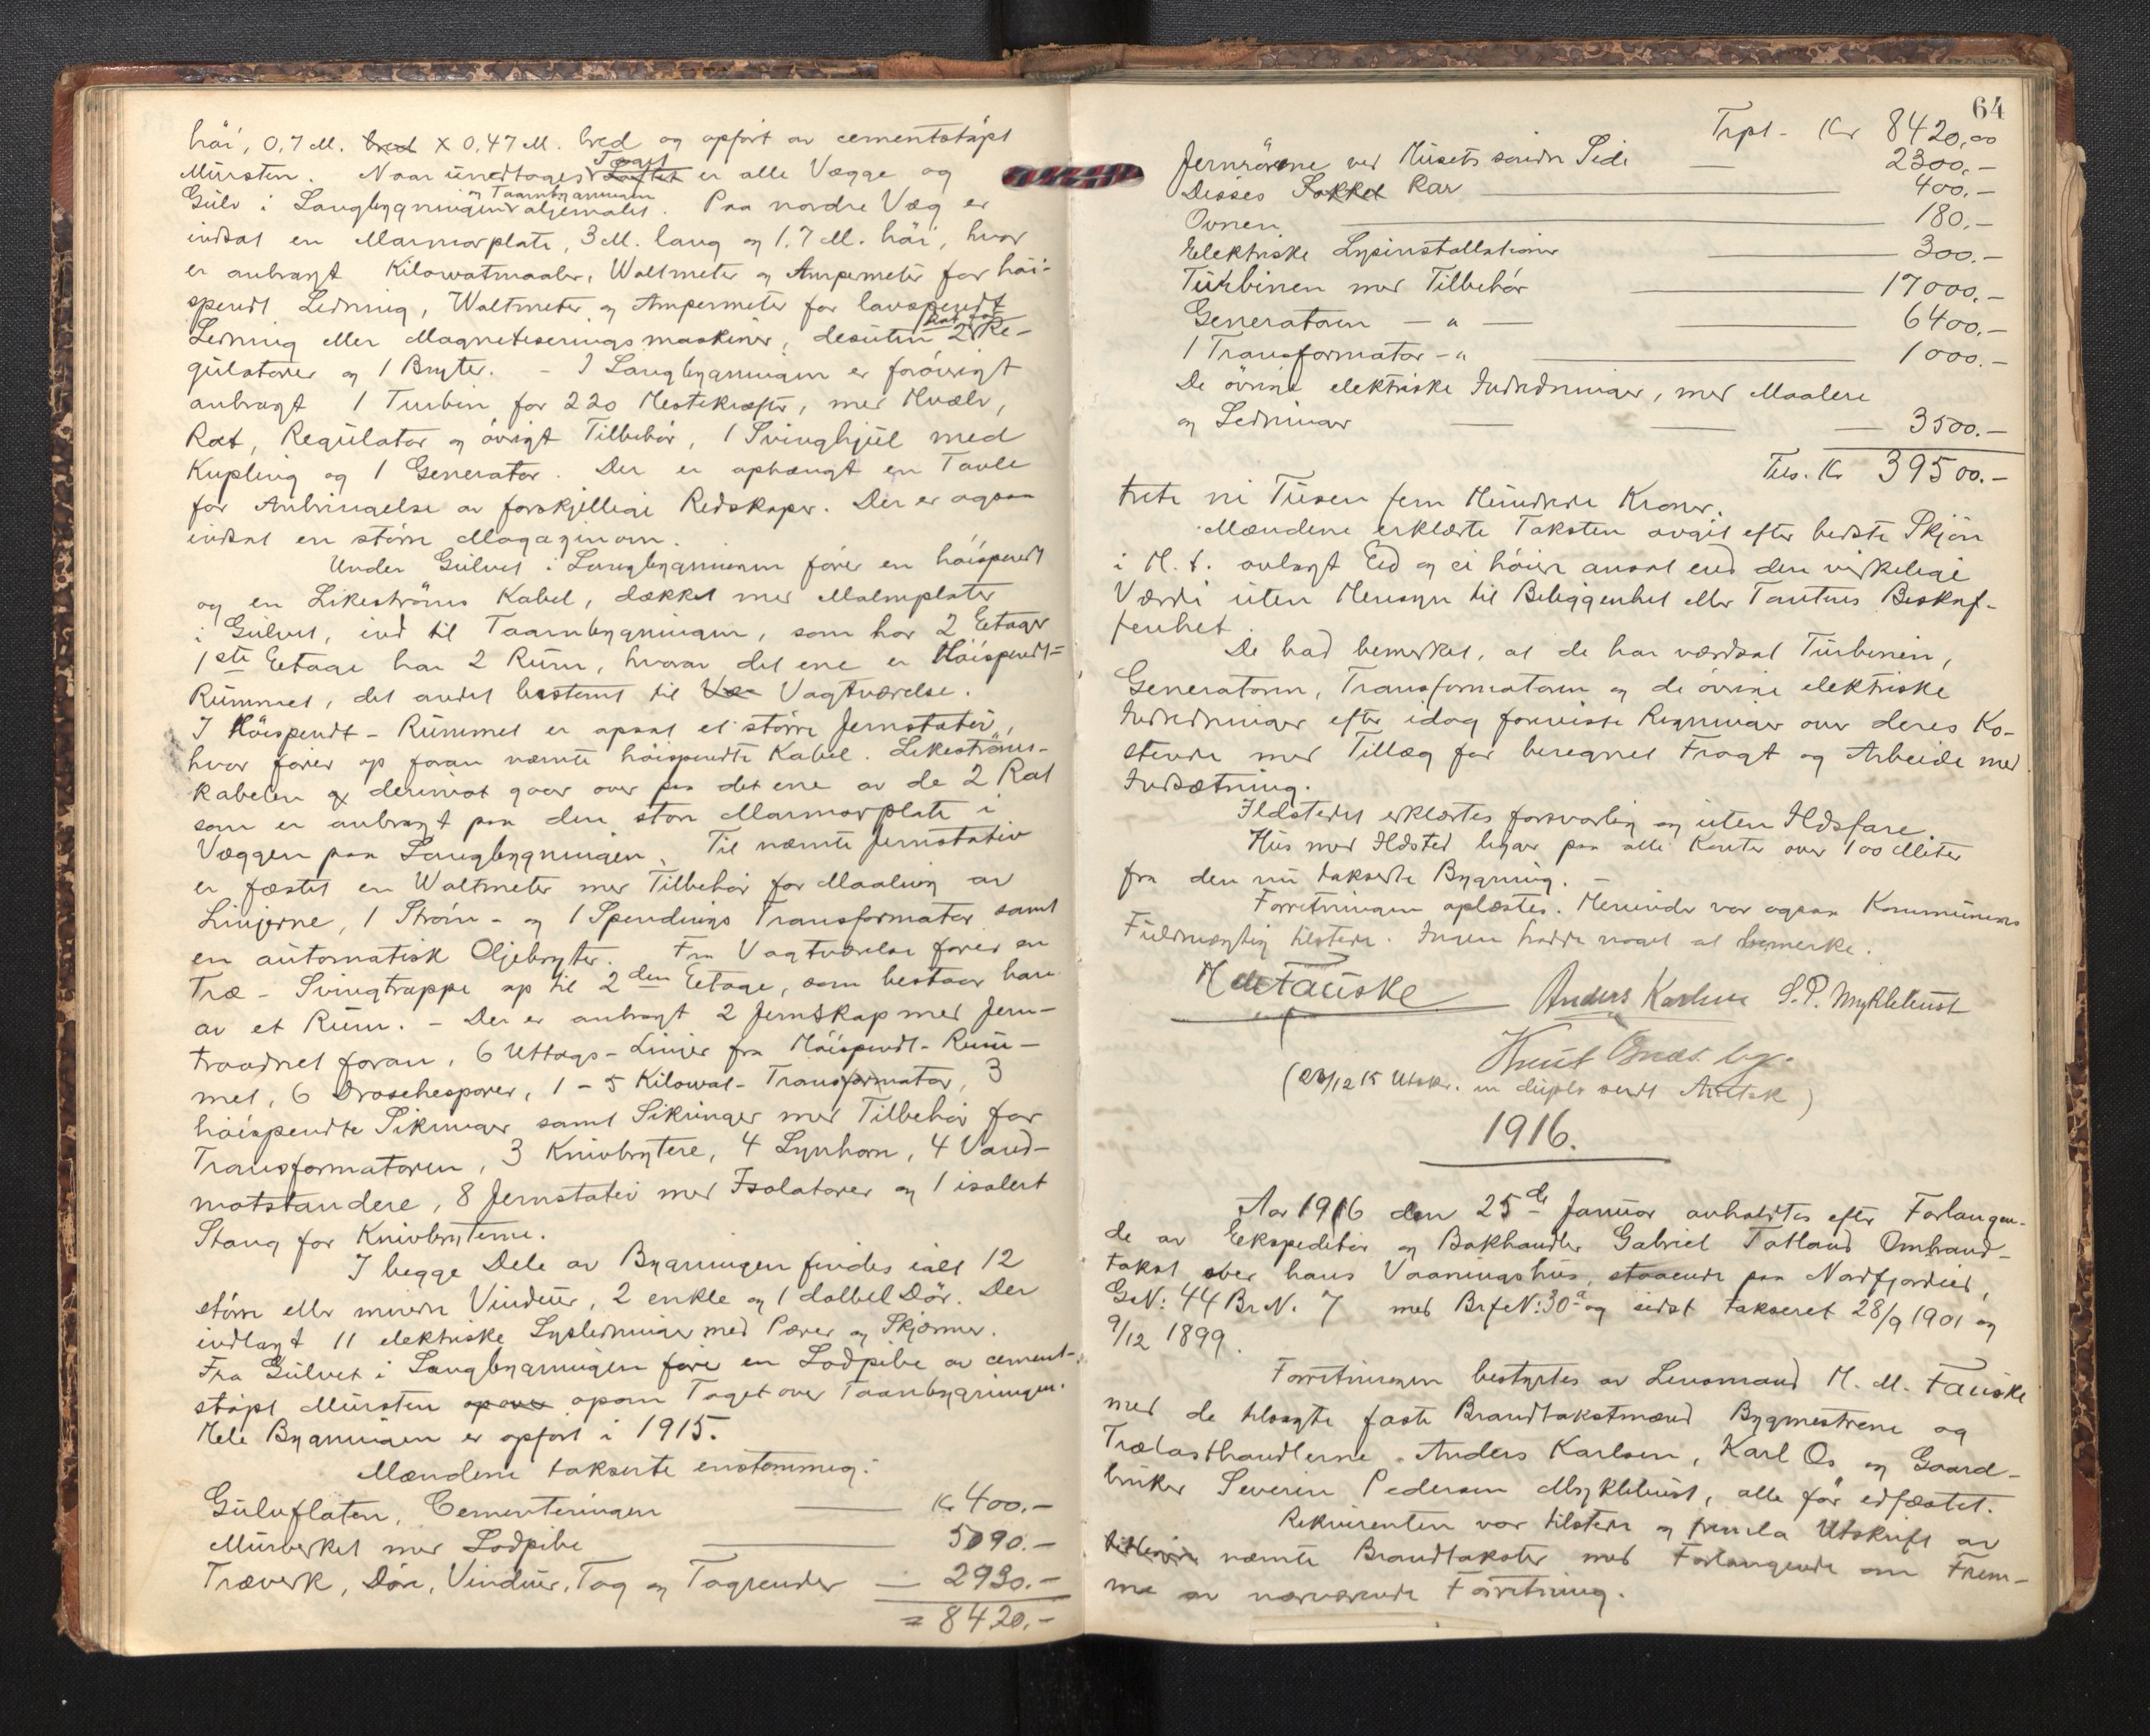 høi, 0,7 M. bred x 0,47 M. bred og opført av cementstøpt
Mursten. Naar undtages Taget Loftet er alle Vægge og
Gulv i Langbygningen og Taarnbygningen oljemalet. Paa nordre Væg er
indsat en Marmorplate, 3 M. lang og 1.7 M. høi, hvor
er anbragt Kilowatmaaler, Woltmeter og Ampermeter for høi-
spendt Ledning, Woltmeter og Ampermeter for lavspendt
Ledning eller Magnetiseringsmaskiner, desuten 2 Rat for Re-
gulatorer og 1 Bryter. - I Langbygningen er forøvrigt
anbragt 1 Turbin for 220 Hestekræfter, med Hvælv,
Rat, Regulator og øvrigt Tilbehør, 1 Svinghjul med
Kupling og 1 Generator. Der er ophængt en Tavle
for Anbringelse av forskjellige Redskaper. Der er ogsaa
indsat en større Magazinovn.
Under Gulvet i Langbygningen fører en høispendt
og en Likestrøms Kabel, dækket med Malmplater
i Gulvet, ind til Taarnbygningen, som har 2 Etager
1ste Etage har 2 Rum, hvorav det ene er Høispendt-
Rummet, det andet bestemt til Væ Vagtværelse.
I Høispendt-Rummet er opsat et større Jernstativ,
hvor fører op foran nævnte høispendte Kabel. Likestrøms-
kabelen og derimot gaar over paa det ene av de 2 Rat
som er anbragt paa den store Marmorplate i
Væggen paa Langbygningen. Til nævnte Jernstativ
er fæstet en Woltmeter med Tilbehør for Maaling av
Linjerne, 1 Strøm- og 1 Spendings Transformator samt
en automatisk Oljebryter. Fra Vagtværelse fører en
Træ-Svingtrappe op til 2den Etage, som bestaar bare
av et Rum. - Der er anbragt 2 Jernskap med Jern-
traadnet foran, 6 Uttags-Linjer fra Høispendt-Rum-
met, 6 Droschespoler, 1 - 5 Kilowat-Transformator, 3
høispendte Sikringer samt Sikringer med Tilbehør for
Transformatoren, 3 Knivbrytere, 4 Lynhorn, 4 Vand-
motstandere, 8 Jernstativ med Isolatorer og 1 isolert
Stang for Knivbryterne.
I begge Dele av Bygningen findes ialt 12
større eller mindre Vinduer, 2 enkle og 1 dobbel Dør. Der
indlagt 11 elektriske Lysledninger med Pærer og Skjærmer.
Fra Gulvet i Langbygningen fører en Lodpibe av cement-
støpt Mursten op over opom Taget over Taarnbygningen.
Hele Bygningen er opført i 1915.
Mændene takserte enstemmig:
Gulvflaten, Cementeringen Kr 400.-
Murverket med Lodpibe 5090.-
Træverk, Døre, Vinduer, Tag og Tagrender - 2930.-
= 8420.-
64
Trpt - Kr 8420,00
Jernrørene ved Husets søndre Side 2300.-
Disses Sokkel Kar 400.-
Ovnen 180.-
Elektriske Lysinstallationer 300.-
Turbinen med Tilbehør 17000.-
Generatoren - " - 6400.-
1 Transformator - " 1000.-
De øvrige elektriske Indredninger, med Maalere
og Ledninger 3500.-
Tils. Kr 39500.-
treti ni Tusen fem Hundrede Kroner.
Mændene erklærte Taksten avgit efter bedste Skjøn
i H. t. avlagt Ed og ei høiere ansat end den virkelige
Værdi uten Hensyn til Beliggenhet eller Tomtens Beskaf-
fenhet.
De bad bemerket, at de har værdsat Turbinen,
Generatoren, Transformatoren og de øvrige elektriske
Indredninger efter idag foreviste Regninger over deres Ko-
stende med Tillæg for beregnet Fragt og Arbeide med
Indsætning.
Ildstedet erklærtes forsvarlig og uten Ildsfare.
Hus med Ildsted ligger paa alle Kanter over 100 Meter
fra den nu takserte Bygning. -
Forretningen oplæstes. Herunder var ogsaa Kommunens
Fuldmægtig tilstede. Ingen hadde noget at bemerke.
H M Fauske Anders Karlsen S. P. Myklebust
Knut
(23/12 15 Utskr. in duplo sendt )
1916.
Aar 1916 den 25de Januar avholdtes efter Forlangen-
de av Ekspeditør og Bokhandler Gabriel Totland Ombrand-
takst over hans Vaaningshus, staaende paa Nordfjordeid,
G.N: 44 Br.N. 7 med Brf.N: 30a og sidst takseret 28/9 1901 og
9/12 1899.
Forretningen bestyrtes av Lensmand H. M. Fauske
med de tilsagte faste Brandtakstmænd Bygmestrene og
Trælasthandlerne Anders Karlsen, Karl Os og Gaard-
bruker Severin Pedersen Myklebust, alle før edfæstet.
Rekvirenten var tilstede og fremla Utskrift av
nævnte Brandtakster med Forlangende om Frem-
me av nærværende Forretning.